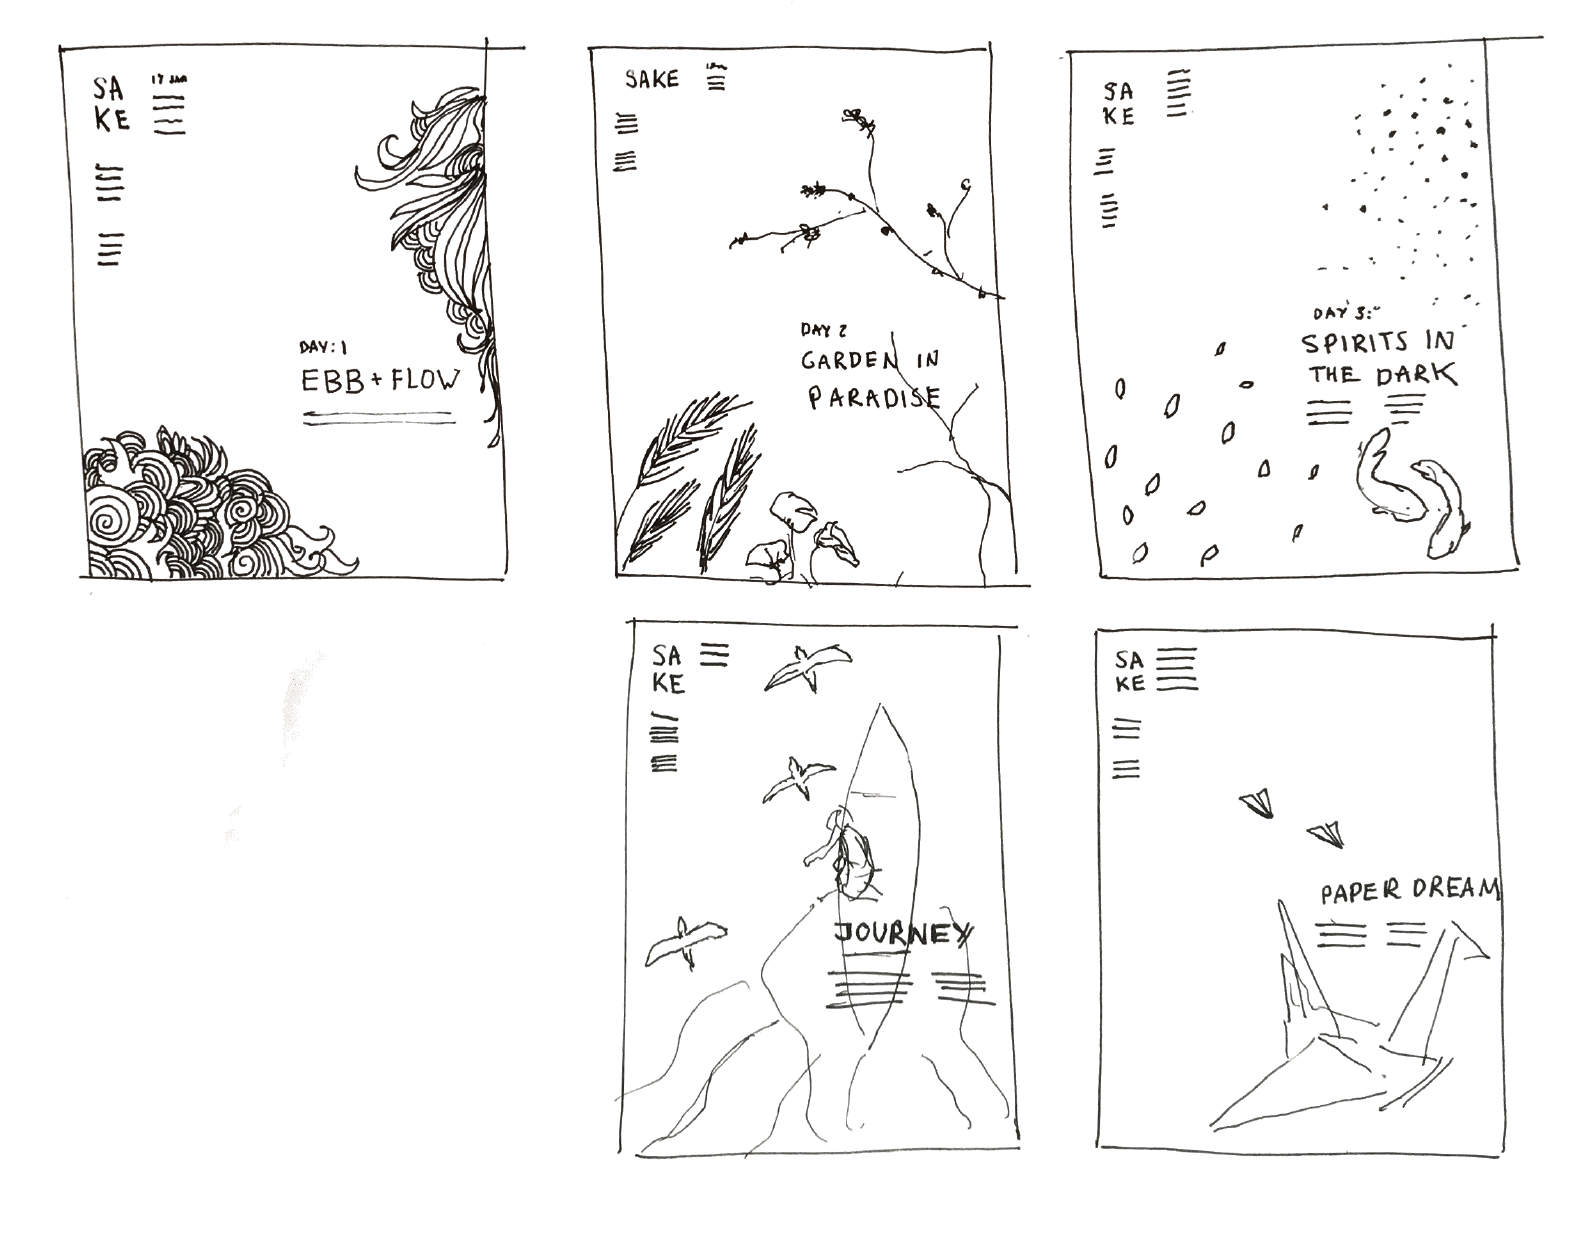 SA
KE
17 JAN
DAY: 1
EBB + FLOW
SAKE
DAY 2
GARDEN IN
PARADISE
SA
KE
DAY 3:
SPIRITS IN
THE DARK
SA
KE
JOURNEY
SA
KE
PAPER DREAM